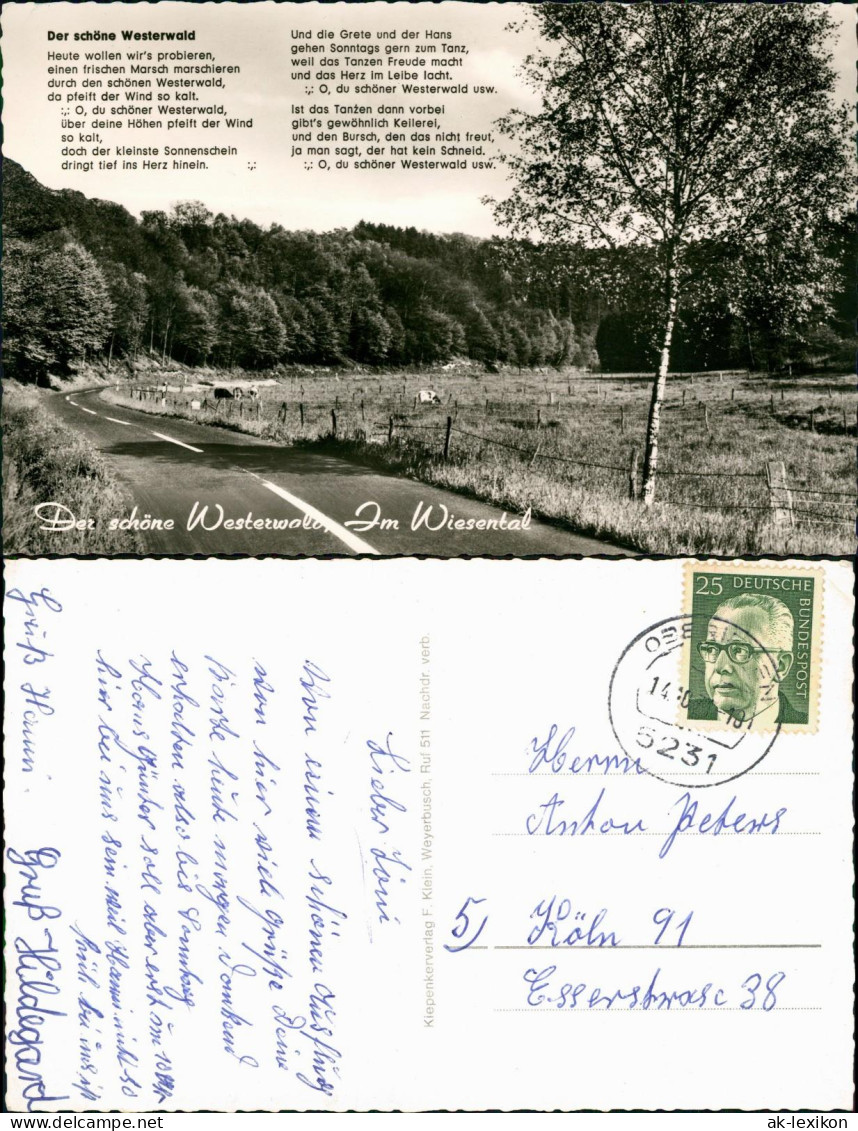 Der schöne Westerwald
Heute wollen wir's probieren,
einen frischen Marsch marschieren
durch den schönen Westerwald,
da pfeift der Wind so kalt.
:,: O, du schöner Westerwald,
über deine Höhen pfeift der Wind
so kalt,
doch der kleinste Sonnenschein
dringt tief ins Herz hinein. :,:
Und die Grete und der Hans
gehen Sonntags gern zum Tanz,
weil das Tanzen Freude macht
und das Herz im Leibe lacht.
:,: O, du schöner Westerwald usw.
Ist das Tanzen dann vorbei
gibt's gewöhnlich Keilerei,
und den Bursch, den das nicht freut,
ja man sagt, der hat kein Schneid.
:,: O, du schöner Westerwald usw.
Der schöne Westerwald, Im Wiesental
Lieber Töni
Von einem schönen Ausflug
von hier viele Grüße Deine
Karte heute morgen dankend
erhalten also bis Sonntag
Hans Günter soll aber erst um 10 Uhr
hier bei uns sein weil Hanni nicht so
früh bei uns ist
Gruß Hanni.
Gruß Hildegard
Kiepenkerverlag F. Klein, Weyerbusch, Ruf 511 Nachdr. verb.
25 DEUTSCHE
BUNDESPOST
14.10
5231
Herrn
Anton Peters
5) Köln 91
Esserstrasse 38
www.ak-ansichtskarten.de
ak-lexikon